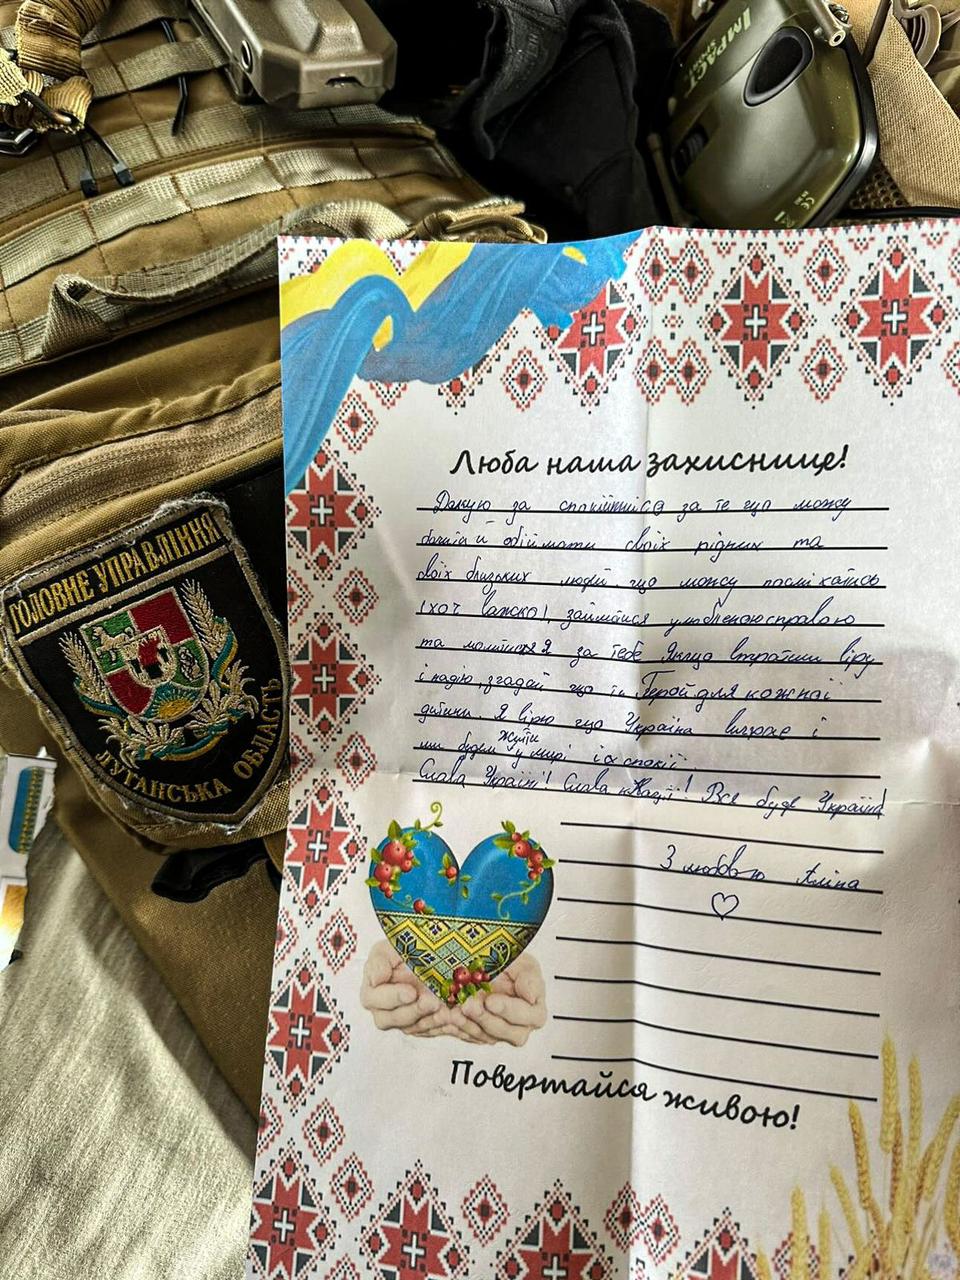 IMPACT
SPORT
ГОЛОВНЕ УПРАВЛІННЯ
ЛУГАНСЬКА ОБЛАСТЬ
Люба наша захиснице!
Дякую за за те що можу
обіймати своїх рідних та
своїх близьких людей що можу
(хоч важко), займатися улюбленою справою
та за тебе Якщо втратиш віру
і надію, згадай що ти Герой для кожної
дитини. Я вірю що Україна і
жити
ми будем у мирі і спокії
Слава Україні! Слава Нації! Все буде Україна
З любовью Аліна
Повертайся живою!